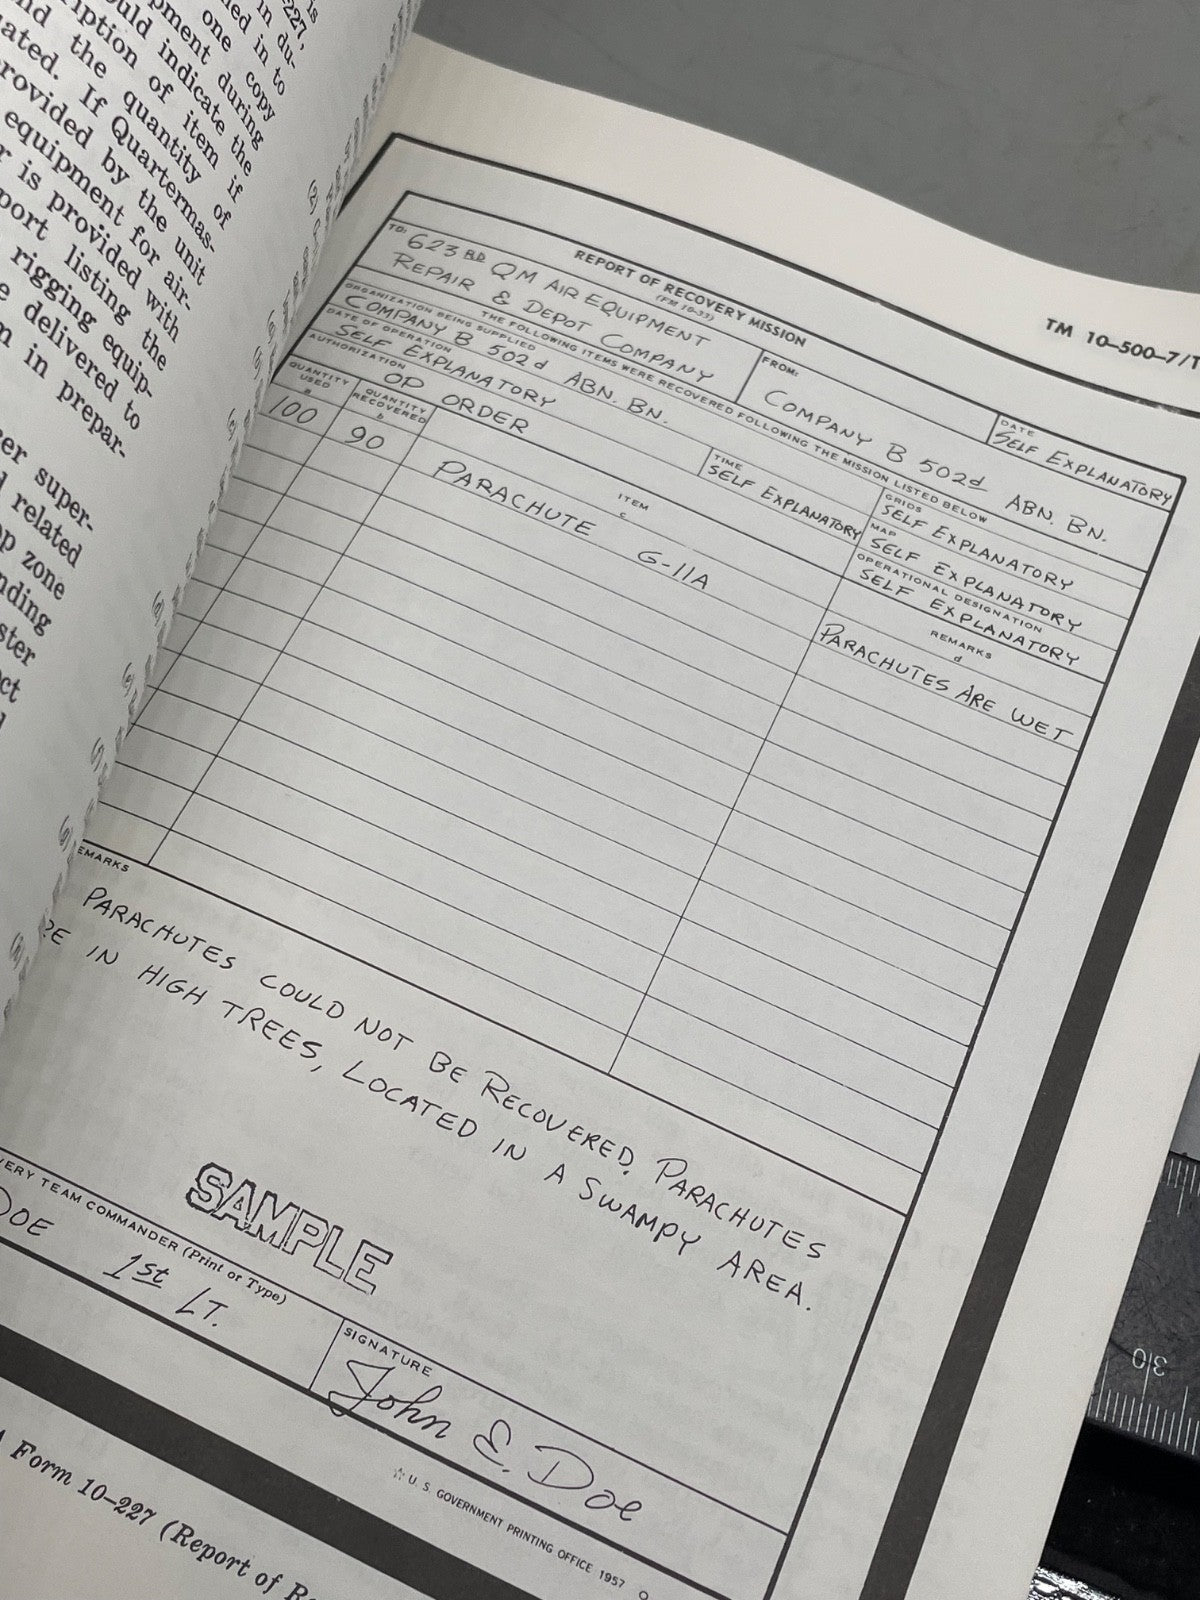 is
-227,
in du-
ned in to
one copy
pment during
ould indicate the
ription of item if
nd the quantity of
ated. If Quartermas-
rovided by the unit
equipment for air-
r is provided with
port listing the
rigging equip-
e delivered to
n in prepar-
er super-
related
p zone
nding
ster
ct
(2)
TM 10-500-7/T
REPORT OF RECOVERY MISSION
(FM 10-33)
TO:
623RD QM AIR EQUIPMENT
REPAIR & DEPOT COMPANY
FROM:
COMPANY B 502d ABN. BN.
DATE
SELF EXPLANATORY
THE FOLLOWING ITEMS WERE RECOVERED FOLLOWING THE MISSION LISTED BELOW
ORGANIZATION BEING SUPPLIED
COMPANY B 502d ABN. BN.
GRIDS
SELF EXPLANATORY
DATE OF OPERATION
SELF EXPLANATORY
TIME
SELF EXPLANATORY
MAP
SELF EXPLANATORY
AUTHORIZATION
OP ORDER
OPERATIONAL DESIGNATION
SELF EXPLANATORY
QUANTITY USED
a
QUANTITY RECOVERED
b
ITEM
c
REMARKS
d
100 90 PARACHUTE G-11A PARACHUTES ARE WET
EMARKS
PARACHUTES COULD NOT BE RECOVERED. PARACHUTES
RE IN HIGH TREES, LOCATED IN A SWAMPY AREA.
SAMPLE
VERY TEAM COMMANDER (Print or Type)
DOE 1st LT.
SIGNATURE
John E. Doe
☆ U. S. GOVERNMENT PRINTING OFFICE 1957 O
A Form 10-227 (Report of Re